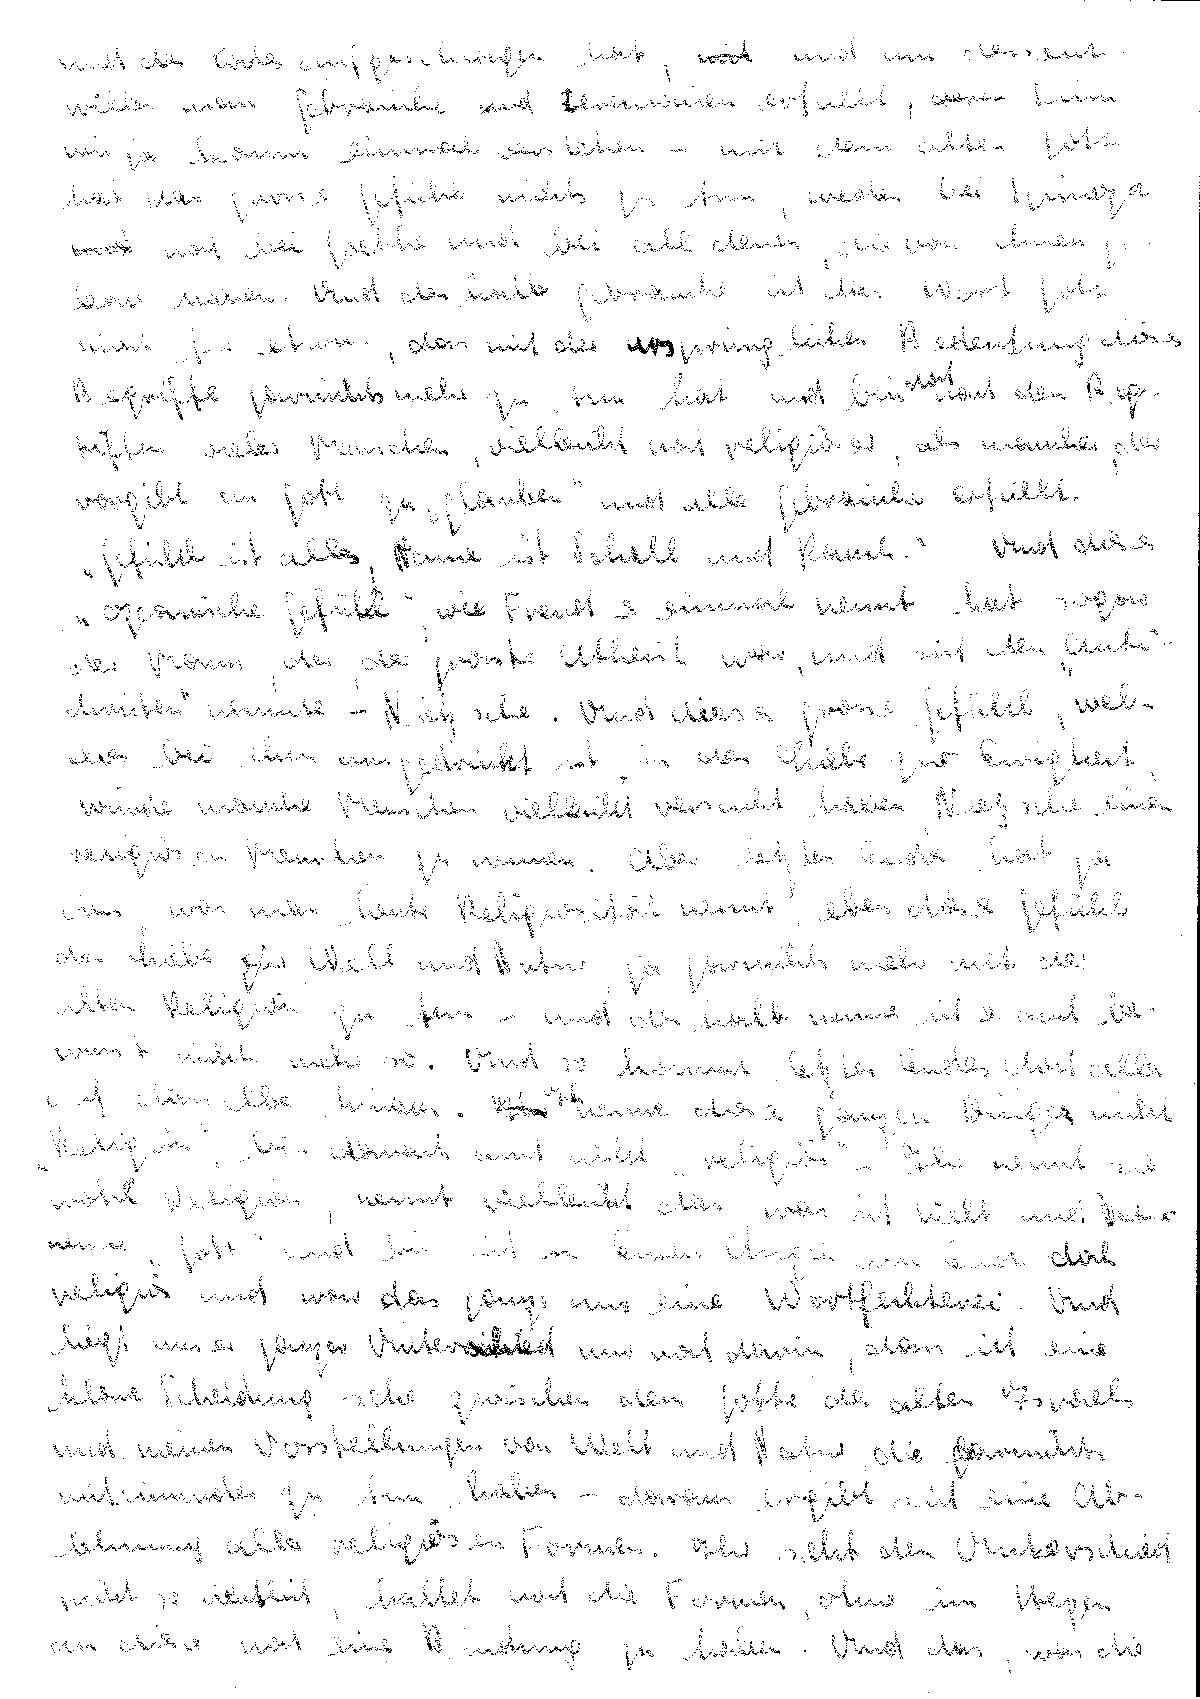 und die Erde aufgeschwungen hat, und um dessent-
willen man Gebräuche und Zeremonien erfüllt, deren Sinn
wir ja kaum einmal verstehen - mit dem alten Gott
hat das grosse Gefühl nichts zu tun, weder bei Spinoza
noch bei Goethe und bei all denen, die von ihnen ge-
lernt haben. Und deshalb gebrauche ich das Wort Gott
nicht für etwas, das mit der ursprünglichen Bedeutung dieses
Begriffes garnichts mehr zu tun hat und bin doch nach den Beg-
riffen vieler Menschen, vielleicht noch religiöser, als mancher, der
vorgibt an Gott zu „glauben" und alle Gebräuche erfüllt.
„Gefühl ist alles, Name ist Schall und Rauch." Und dieses
„Ozeanische Gefühl", wie Freud es einmal nennt hat sogar
der Mann, der der grösste Atheist war, und sich den „Anti-
christen" nannte - Nietzsche. Und dieses grosse Gefühl, wel-
ches bei ihm ausgedrückt ist in der Liebe zur Ewigkeit,
würde manche Menschen vielleicht versucht haben Nietzsche einen
religiösen Menschen zu nennen. Aber letzten Endes hat ja
das was man heute Religiosität nennt, eben dieses Gefühl
der Liebe zur Welt und Natur, ja garnichts mehr mit der
alten Religion zu tun - und deshalb nenne ich es auch be-
wusst nicht mehr so. Und so kommt letzten Endes doch alles
auf dasselbe hinaus. Ich nenne diese ganzen Dinge nicht
„Religion", bin demnach auch nicht „religiös" - Ihr nennt sie
wohl Religion, nennt vielleicht das, was ich Welt und Natur
nenne „Gott" und bin ich in Euren Augen nun auch doch
religiös und war das ganze nur eine Wortfechterei. Und
liegt unser ganzer Unterschied nur noch darin, dass ich eine
klare Scheidung sehe zwischen dem Gotte des alten Israels
und meinen Vorstellungen von Welt und Natur, die garnichts
miteinander zu tun haben - daraus ergibt sich eine Ab-
lehnung aller religiösen Formen. Ihr seht den Unterschied
nicht so deutlich, haltet noch die Formen, ohne im Wegen
an diese noch eine Bindung zu haben. Und das, was die